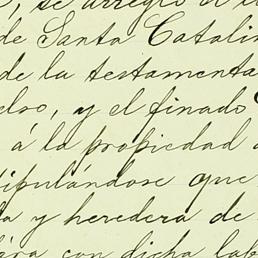 , se arregló a la
de Santa Catalin
de la testamenta
elso, y el finado
á la propiedad
tipulándose que
la y heredera de
ára con dicha lab